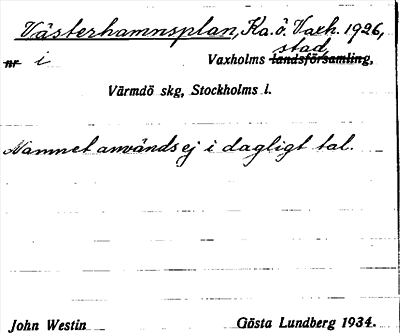 Västerhamnsplan, Ka. ö. Vaxh. 1926,
nr i Vaxholms landsförsamling, stad
Värmdö skg, Stockholms l.
Namnet används ej i dagligt tal.
John Westin Gösta Lundberg 1934.